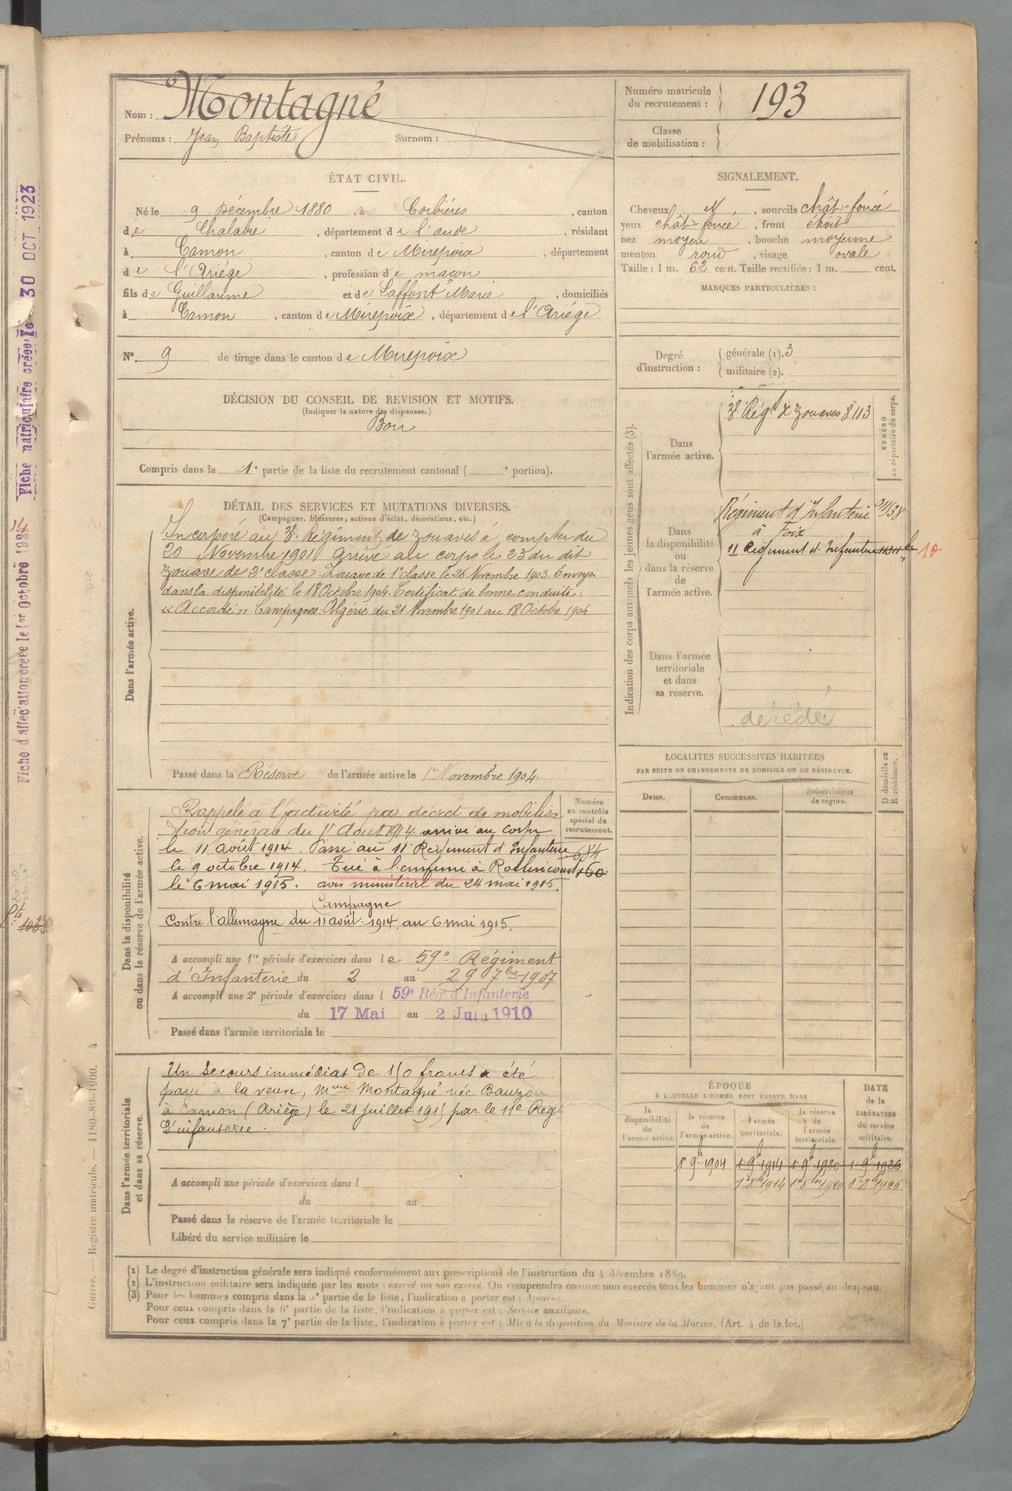 Nom : Montagné
Prénoms : Jean Baptiste Surnom :
Numéro matricule du recrutement : 193
Classe de mobilisation :
ÉTAT CIVIL.
Né le 9 Décembre 1880, à Corbières, canton
de Chalabre, département de l'aude, résidant
à Camon, canton de Mirepoix, département
de l'Ariége, profession de maçon
fils de Guillaume et de Laffont Marie, domiciliés
à Camon, canton de Mirepoix, département de l'Ariége
N° 9 de tirage dans le canton de Mirepoix
SIGNALEMENT.
Cheveux N, sourcils chât-foncé
yeux chât foncé, front étroit
nez moyen, bouche moyenne
menton rond, visage ovale
Taille : 1 m. 62 cent. Taille rectifiée : 1 m. cent.
MARQUES PARTICULIÈRES :
Degré d'instruction : générale (1). 3
militaire (2).
DÉCISION DU CONSEIL DE REVISION ET MOTIFS.
(Indiquer la nature des dispenses.)
Bon
Compris dans la 1e partie de la liste du recrutement cantonal ( e portion).
DÉTAIL DES SERVICES ET MUTATIONS DIVERSES.
(Campagnes, blessures, actions d'éclat, décorations, etc.)
Dans l'armée active.
Incorporé au 3e Régiment de zouaves à compter du
20 Novembre 1901 arrivé au corps le 23 du dit
zouave de 2e classe. Zouave de 1e classe le 26 Novembre 1903. Envoyé
dans la disponibilité le 18 Octobre 1904. Certificat de bonne conduite :
« Accordé ». Campagnes : Algérie du 21 Novembre 1901 au 18 Octobre 1904
Passé dans la Réserve de l'armée active le 1er Novembre 1904.
Indication des corps auxquels les jeunes gens sont affectés (3).
NUMÉRO au répertoire du corps.
Dans l'armée active.
3e Régt de Zouaves 8113
Dans la disponibilité ou dans la réserve de l'armée active.
Régiment d'Infanterie
à Foix
11 Régiment d'Infanterie
10
Dans l'armée territoriale et dans sa réserve.
décédé
Dans la disponibilité ou dans la réserve de l'armée active.
Numéro au contrôle spécial du recrutement.
684
160
Rappelé à l'activité par décret de mobilisa
tion générale du 1r Aout 1914 arrivé au corps
le 11 août 1914. Passé au 11 Régiment d'Infanterie
le 9 octobre 1914. Tué à l'ennemi à Roclincourt
le 6 mai 1915. avis ministériel du 24 mai 1915.
Campagne
Contre l'allemagne du 11 août 1914 au 6 mai 1915.
A accompli une 1re période d'exercices dans le 59e Régiment
d'Infanterie du 2 au 29 7bre 1907
A accompli une 2e période d'exercices dans l 59e Rég' d'Infanterie
du 17 Mai au 2 Juin 1910
Passé dans l'armée territoriale le
LOCALITÉS SUCCESSIVES HABITÉES
PAR SUITE DE CHANGEMENTS DE DOMICILE OU DE RÉSIDENCE.
Dates. Communes. Subdivisions de région. D domicile ou R résidence.
Dans l'armée territoriale et dans sa réserve.
Un secours immédiat de 150 francs a été
payé à la veuve, Mme Montagné née Bauzou
à Camon (Ariége) le 21 juillet 1915 par le 11e Régt
d'infanterie.
A accompli une période d'exercices dans l
du au
Passé dans la réserve de l'armée territoriale le
Libéré du service militaire le
ÉPOQUE
À LAQUELLE L'HOMME DOIT PASSER DANS
la disponibilité de l'armée active.
la réserve de l'armée active.
l'armée territoriale.
la réserve de l'armée territoriale.
DATE de la LIBÉRATION du service militaire.
1r 9b 1904 1r 9b 1914 1r 9b 1920 1r 9b 1926
(1) Le degré d'instruction générale sera indiqué conformément aux prescriptions de l'instruction du 4 décembre 1889.
(2) L'instruction militaire sera indiquée par les mots : exercé ou non exercé. On comprendra comme non exercés tous les hommes n'ayant pas passé au drapeau.
(3) Pour les hommes compris dans la 5e partie de la liste, l'indication à porter est : Ajourné.
Pour ceux compris dans la 6e partie de la liste, l'indication à porter est : Service auxiliaire.
Pour ceux compris dans la 7e partie de la liste, l'indication à porter est : Mis à la disposition du Ministre de la Marine. (Art. 4 de la loi.)
Guerre. — Registre matricule. — 1180-89-1900. 4
Fiche d'affectation créée le 1er Octobre 1924
Fiche matriculaire créée le 30 OCT 1923